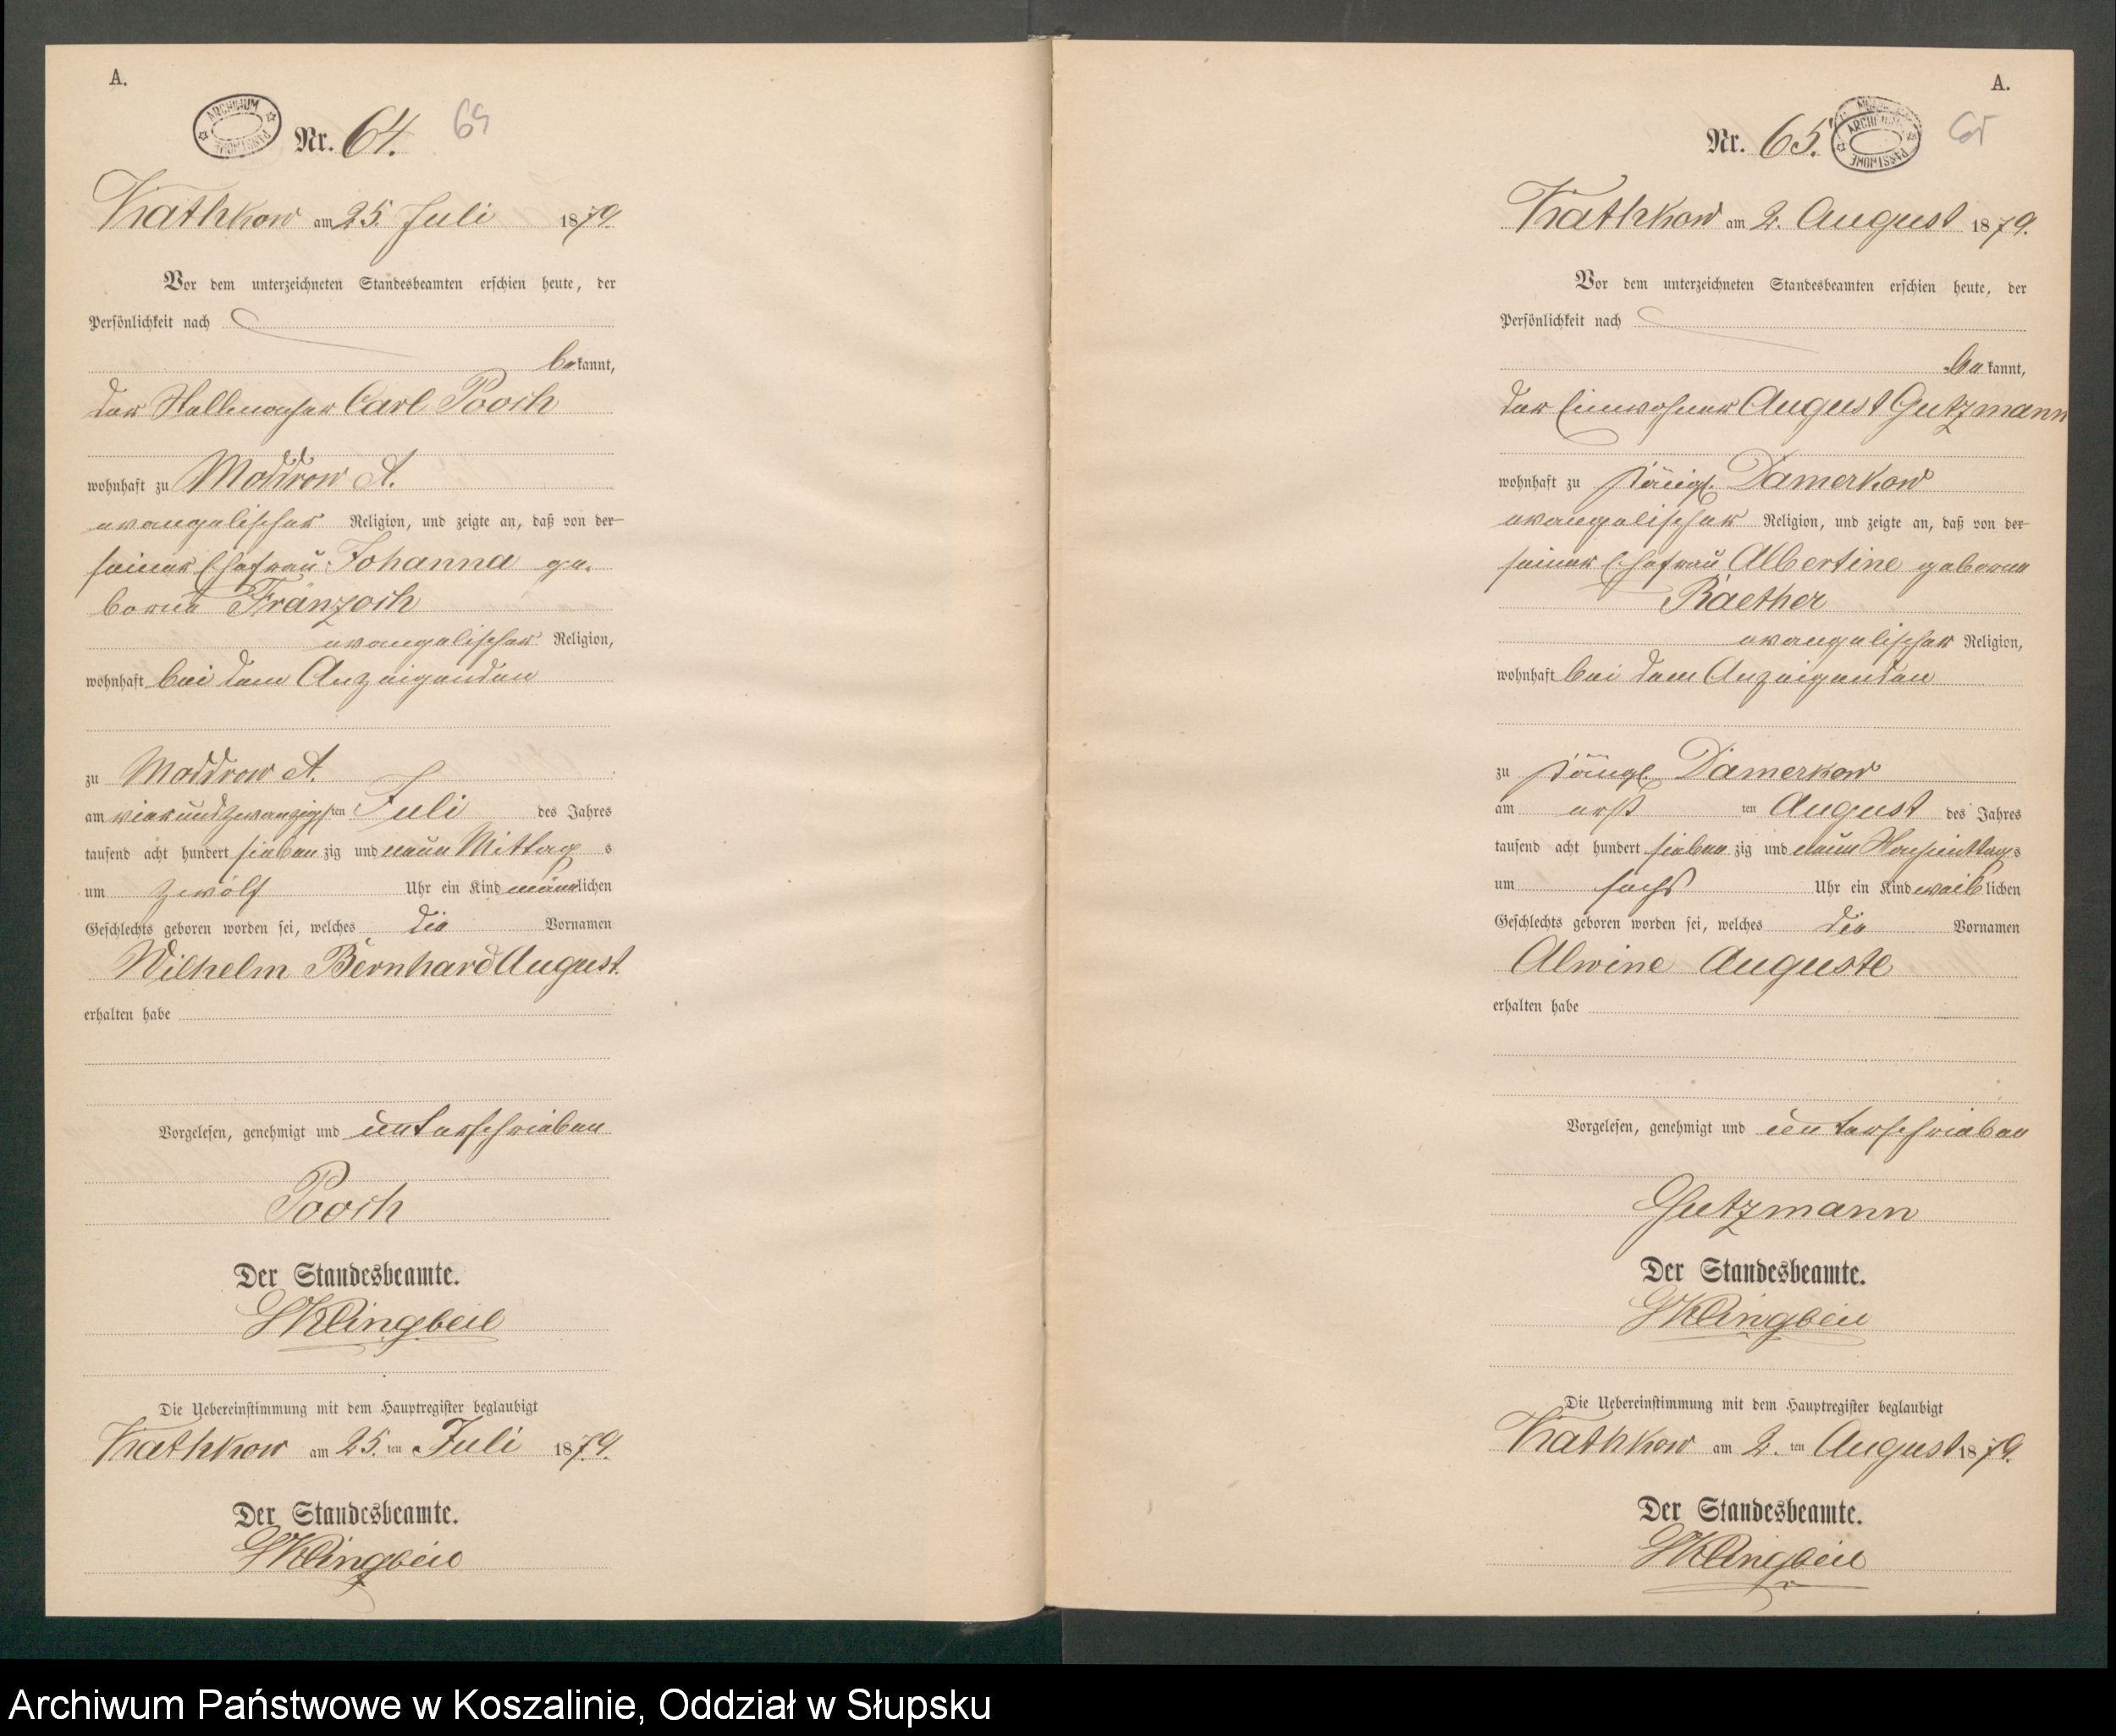 A.
ARCHIWUM PAŃSTWOWE
Nr. 64. 64
Wathkow am 25. Juli 1879.
Vor dem unterzeichneten Standesbeamten erschien heute, der
Persönlichkeit nach
bekannt,
der Stellmacher Carl Pooch
wohnhaft zu Moddrow A.
evangelischer Religion, und zeigte an, daß von der
seiner Ehefrau Johanna ge-
borne Franzoch
evangelischer Religion,
wohnhaft bei dem Anzeigenden
zu Moddrow A.
am vierundzwanzigsten Juli des Jahres
tausend acht hundert siebenzig und neun Mittags
um zwölf Uhr ein Kind männlichen
Geschlechts geboren worden sei, welches die Vornamen
Wilhelm Bernhard August.
erhalten habe
Vorgelesen, genehmigt und unterschrieben
Pooch
Der Standesbeamte.
Klingbeil
Die Uebereinstimmung mit dem Hauptregister beglaubigt
Wathkow am 25. ten Juli 1879.
Der Standesbeamte.
Klingbeil
A.
Nr. 65. ARCHIWUM PAŃSTWOWE 65
Wathkow am 2. August 1879.
Vor dem unterzeichneten Standesbeamten erschien heute, der
Persönlichkeit nach
bekannt,
der Einwohner August Gutzmann
wohnhaft zu Königl. Damerkow
evangelischer Religion, und zeigte an, daß von der
seiner Ehefrau Albertine geborne
Raether
evangelischer Religion,
wohnhaft bei dem Anzeigenden
zu Königl. Damerkow
am ersten August des Jahres
tausend acht hundert siebenzig und neun Nachmittags
um sechs Uhr ein Kind weiblichen
Geschlechts geboren worden sei, welches die Vornamen
Alwine Auguste
erhalten habe
Vorgelesen, genehmigt und unterschrieben
Gutzmann
Der Standesbeamte.
Klingbeil
Die Uebereinstimmung mit dem Hauptregister beglaubigt
Wathkow am 2. ten August 1879.
Der Standesbeamte.
Klingbeil
Archiwum Państwowe w Koszalinie, Oddział w Słupsku